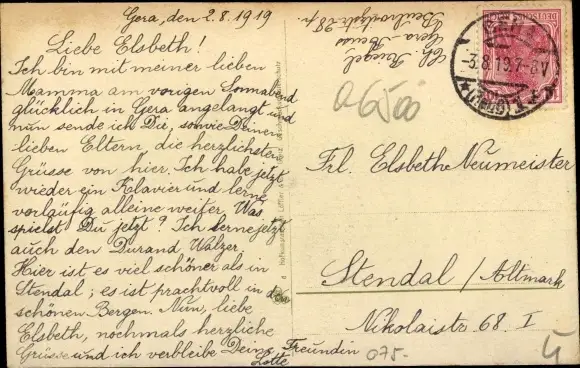 Gera, den 2.8.1919
Liebe Elsbeth!
Ich bin mit meiner lieben
Mamma am vorigen Sonnabend
glücklich in Gera angelangt und
nun sende ich Dir, sowie Deinen
lieben Eltern, die herzlichsten
Grüsse von hier. Ich habe jetzt
wieder ein Klavier und lerne
vorläufig alleine weiter. Was
spielst Du jetzt? Ich lerne jetzt
auch den Durand Walzer.
Hier ist es viel schöner als in
Stendal; es ist prachtvoll in den
schönen Bergen. Nun, liebe
Elsbeth, nochmals herzliche
Grüsse und ich verbleibe Deine Freundin
Lotte
Gera-Reuss
-3.8.19.7-8V
a6500
Frl. Elsbethe Neumeister
Stendal / Altmark
Nikolaistr. 68. I
075-